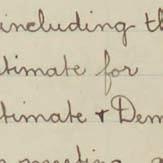 including th
timate for
timate & Dem
meeting